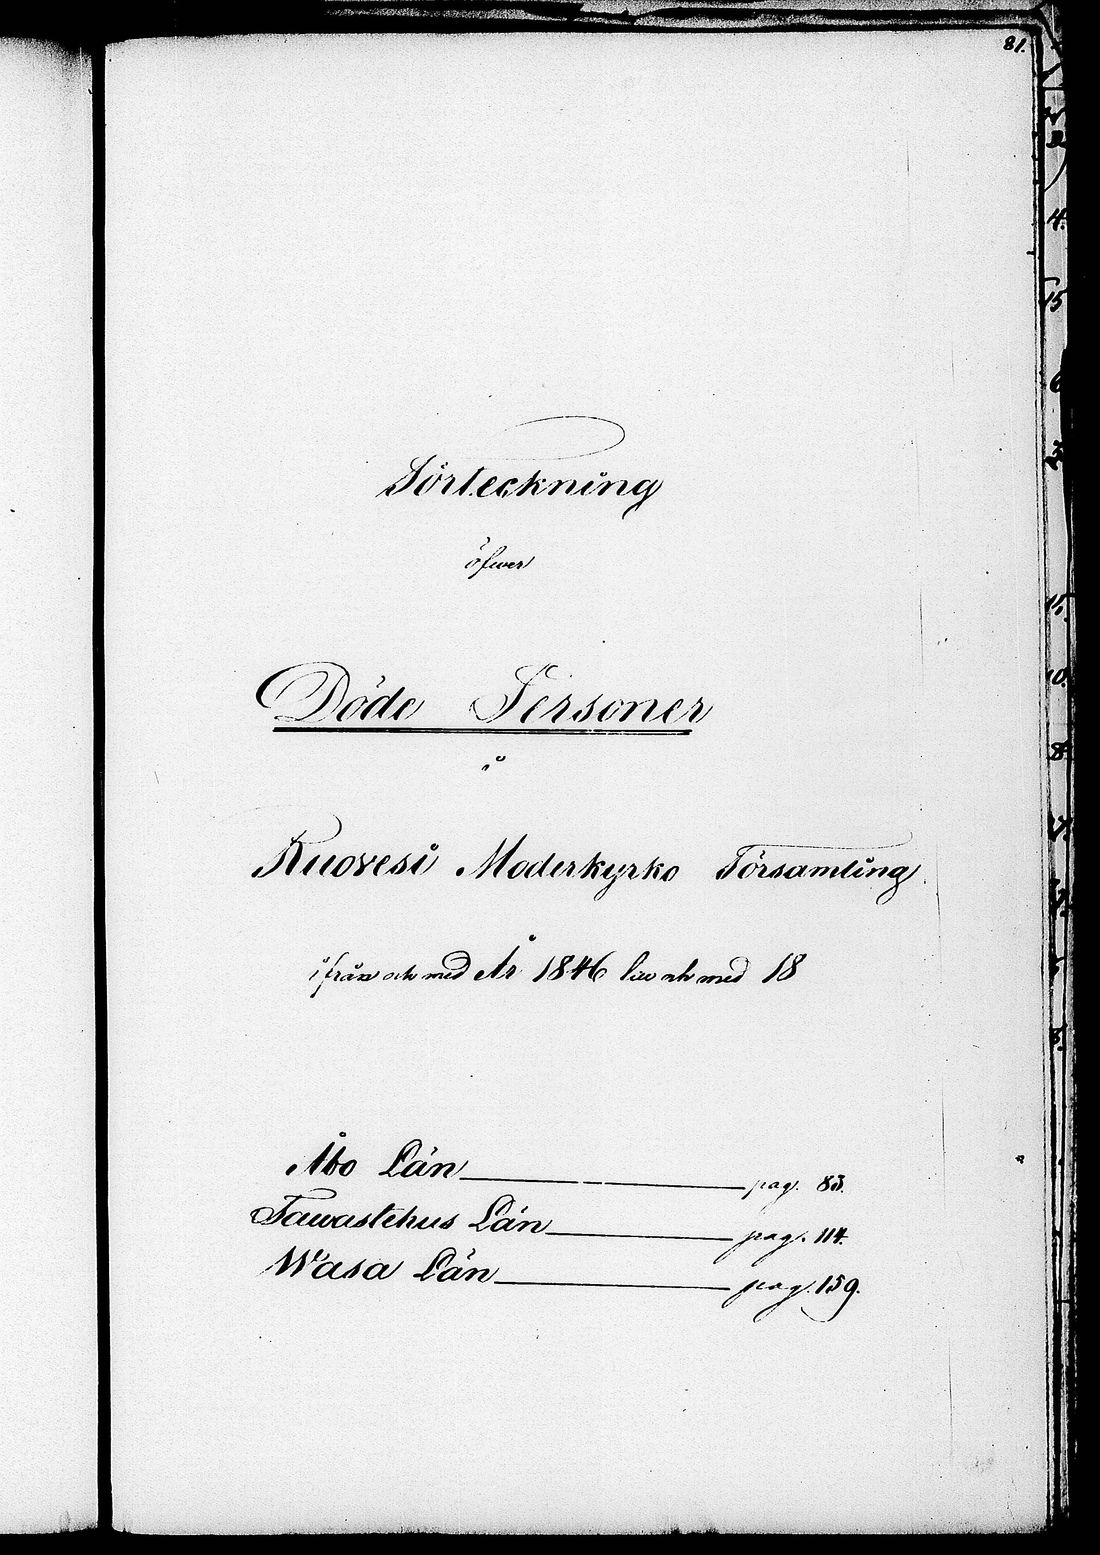 81.
Förteckning
öfwer
Döde Personer
i
Ruovesi Moderkyrko Församling
ifrån och med År 1846 till och med 18
Åbo Län pag. 83.
Tawastehus Län pag. 114.
Wasa Län pag. 159.
4.
15
6
11.
10.
8.